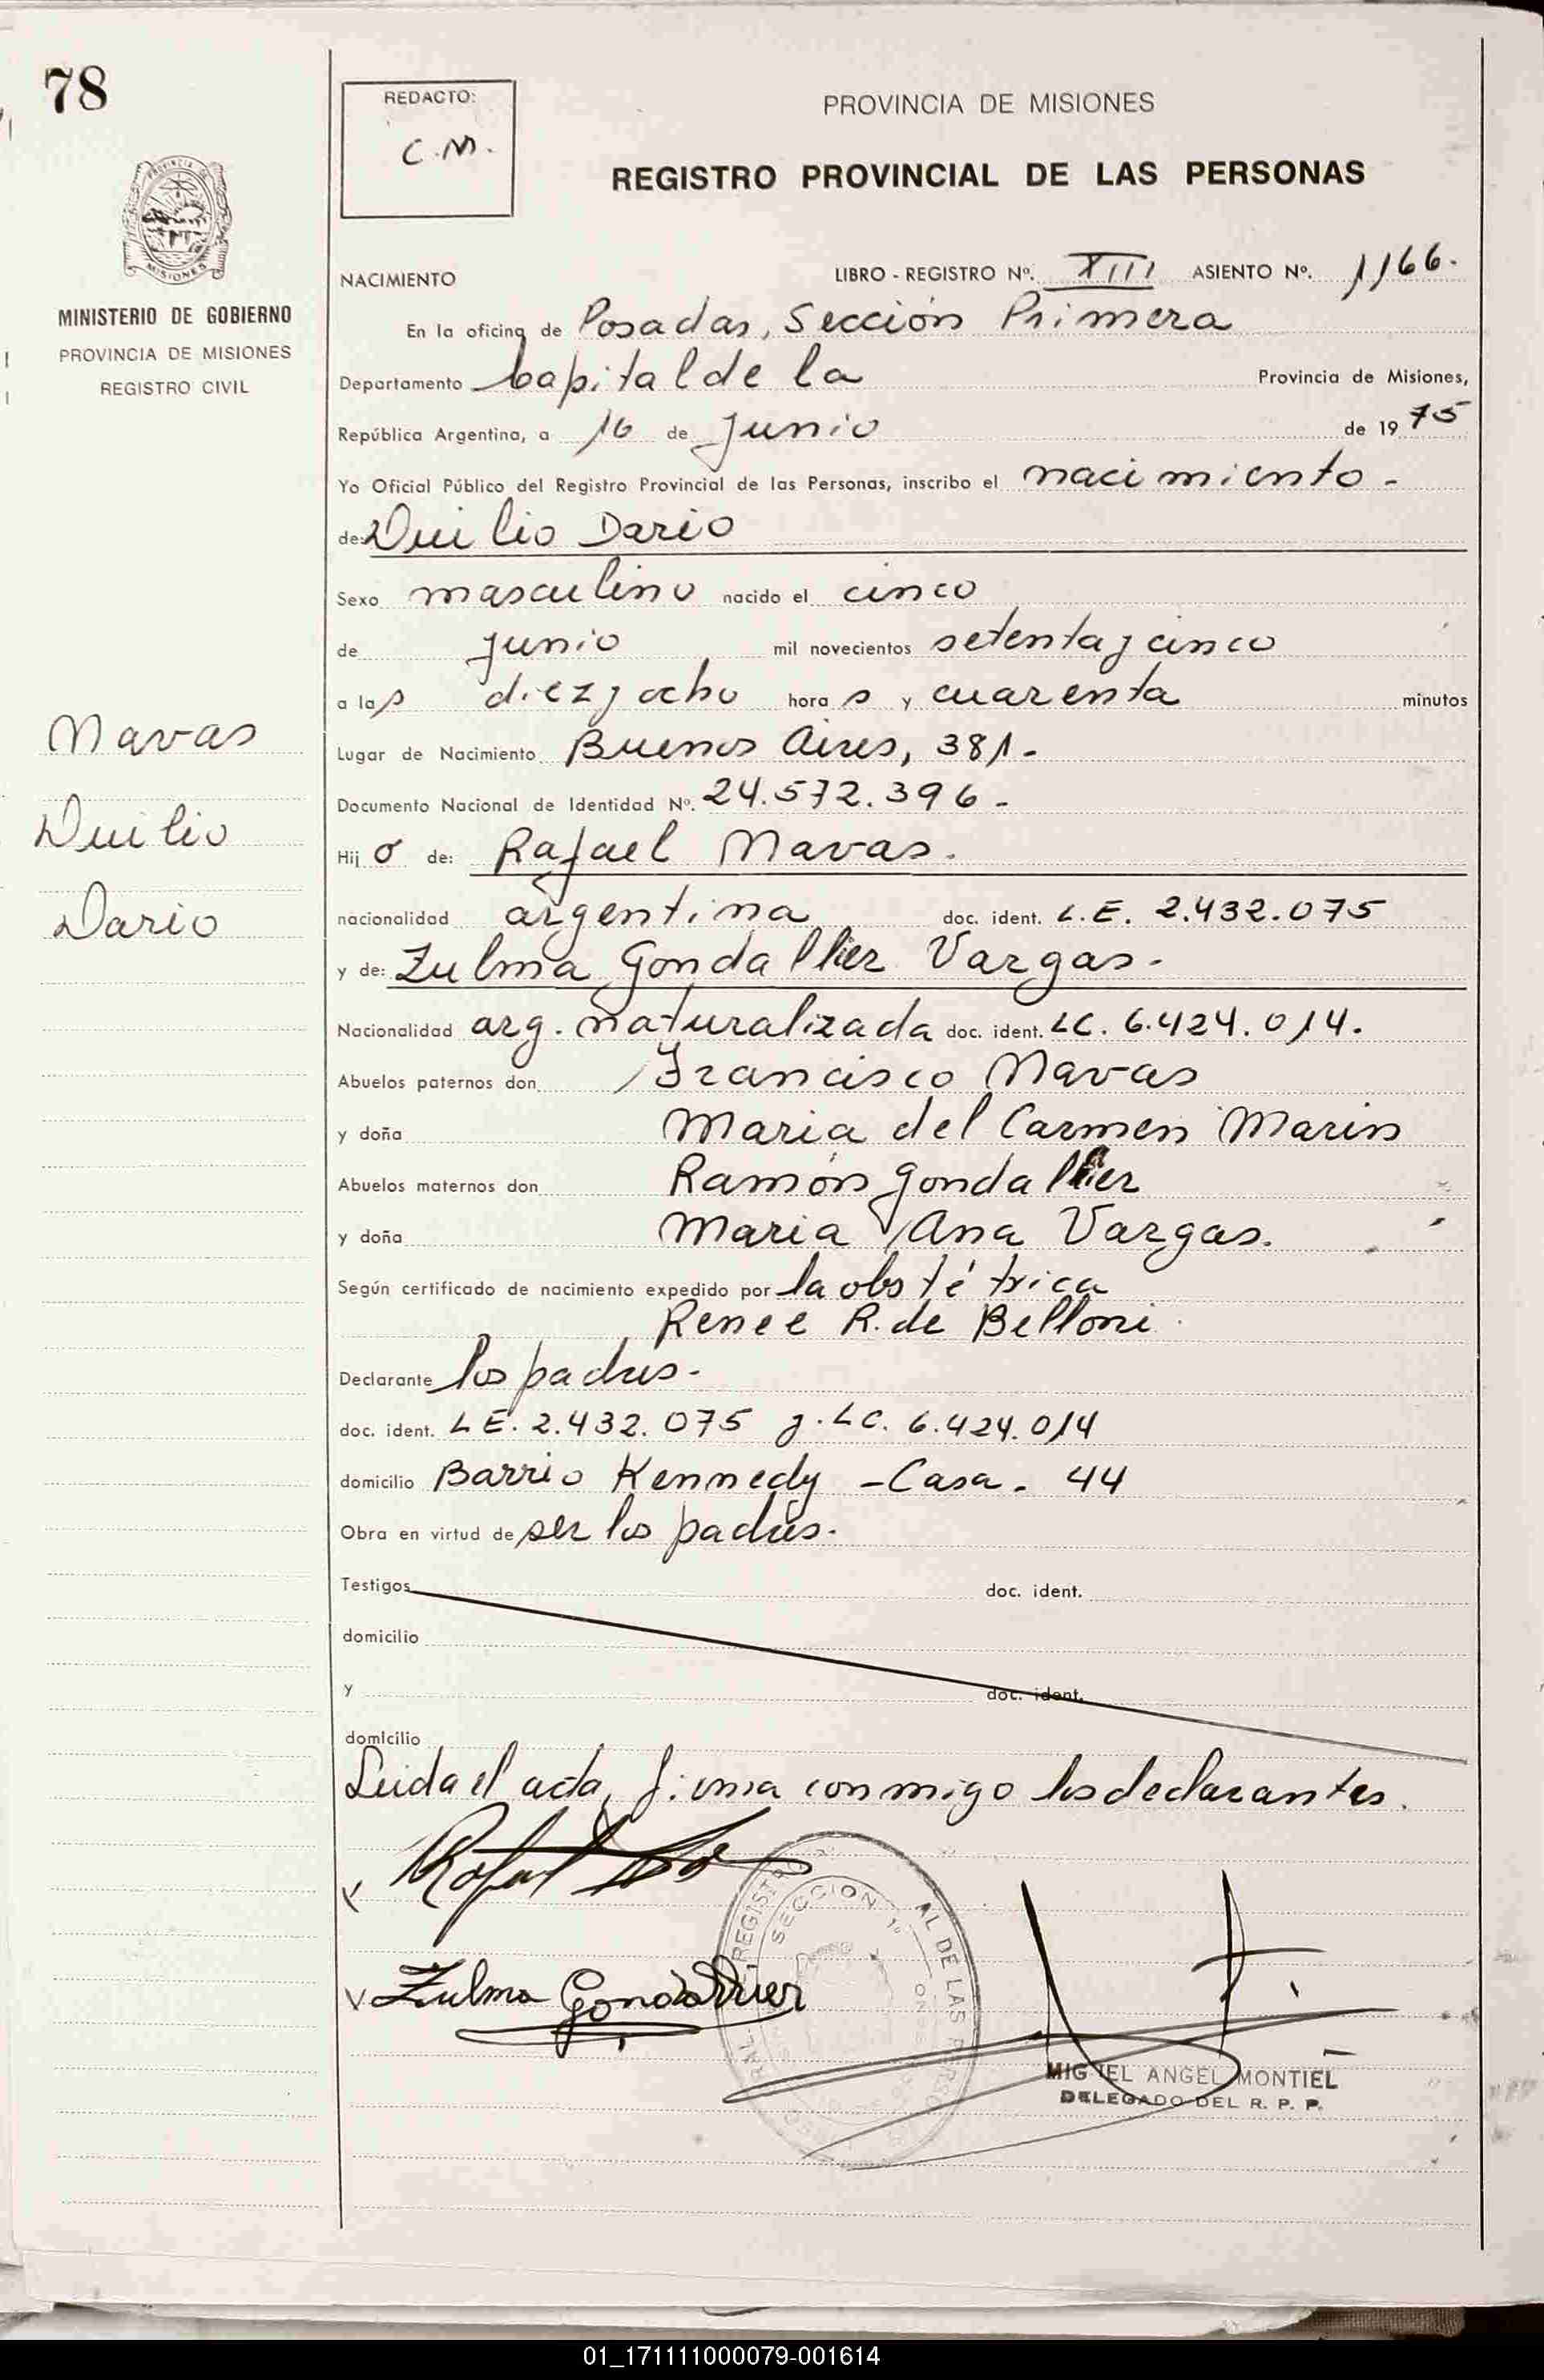 78
REDACTO:
C.M.
PROVINCIA DE MISIONES
REGISTRO PROVINCIAL DE LAS PERSONAS
PROVINCIA DE
MISIONES
MINISTERIO DE GOBIERNO
PROVINCIA DE MISIONES
REGISTRO CIVIL
Navas
Duilio
Dario
NACIMIENTO LIBRO - REGISTRO Nº. XIII ASIENTO Nº. 1166.
En la oficina de Posadas, Sección Primera
Departamento Capital de la Provincia de Misiones,
República Argentina, a 16 de Junio de 1975
Yo Oficial Público del Registro Provincial de las Personas, inscribo el nacimiento -
de: Duilio Dario
Sexo masculino nacido el cinco
de junio mil novecientos setenta y cinco
a las diez y ocho horas y cuarenta minutos
Lugar de Nacimiento Buenos Aires, 381-
Documento Nacional de Identidad Nº. 24.572.396-
Hijo de: Rafael Navas.
nacionalidad argentina doc. ident. L.E. 2.432.075
y de: Zulma Gondallier Vargas-
Nacionalidad arg. naturalizada doc. ident. LC. 6.424.014.
Abuelos paternos don Francisco Navas
y doña Maria del Carmen Marin
Abuelos maternos don Ramón Gondallier
y doña Maria Ana Vargas.
Según certificado de nacimiento expedido por la obstétrica
Renee R. de Belloni
Declarante los padres-
doc. ident. LE. 2.432.075 y. LC. 6.424.014
domicilio Barrio Kennedy - Casa. 44
Obra en virtud de ser los padres-
Testigos doc. ident.
domicilio
y doc. ident.
domicilio
Leida el acta, firma conmigo los declarantes.
Rafael
Zulma Gondallier
SECCION 1º
MIGUEL ANGEL MONTIEL
DELEGADO DEL R. P. P.
01_171111000079-001614